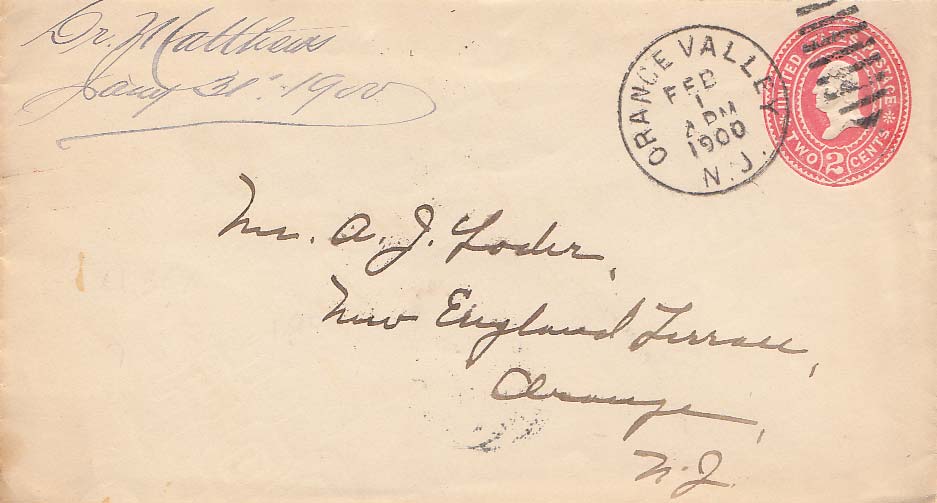 Dr. Matthews
Jany 31st 1900
ORANGE VALLEY
FEB
1
4 PM
1900
N.J.
UNITED STATES POSTAGE
TWO 2 CENTS
Mr. A. J. Yoder,
New England Terrace,
Orange,
N.J.